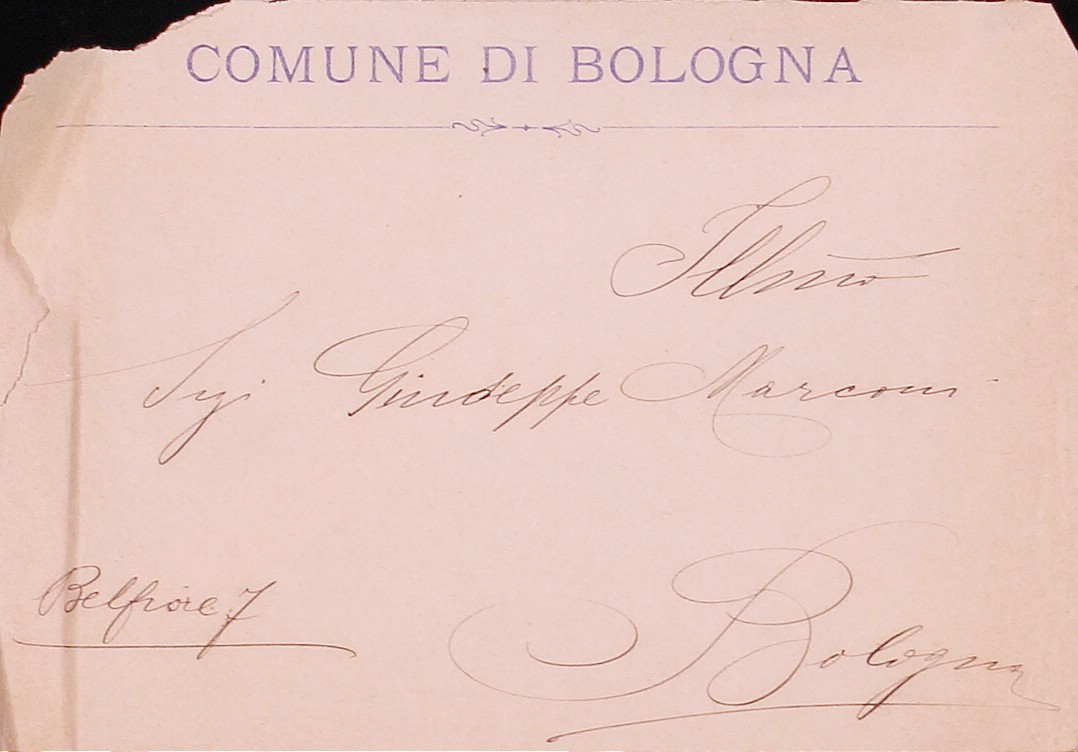 COMUNE DI BOLOGNA
Illmo
Sig. Giuseppe Marconi
Belfiore 7
Bologna